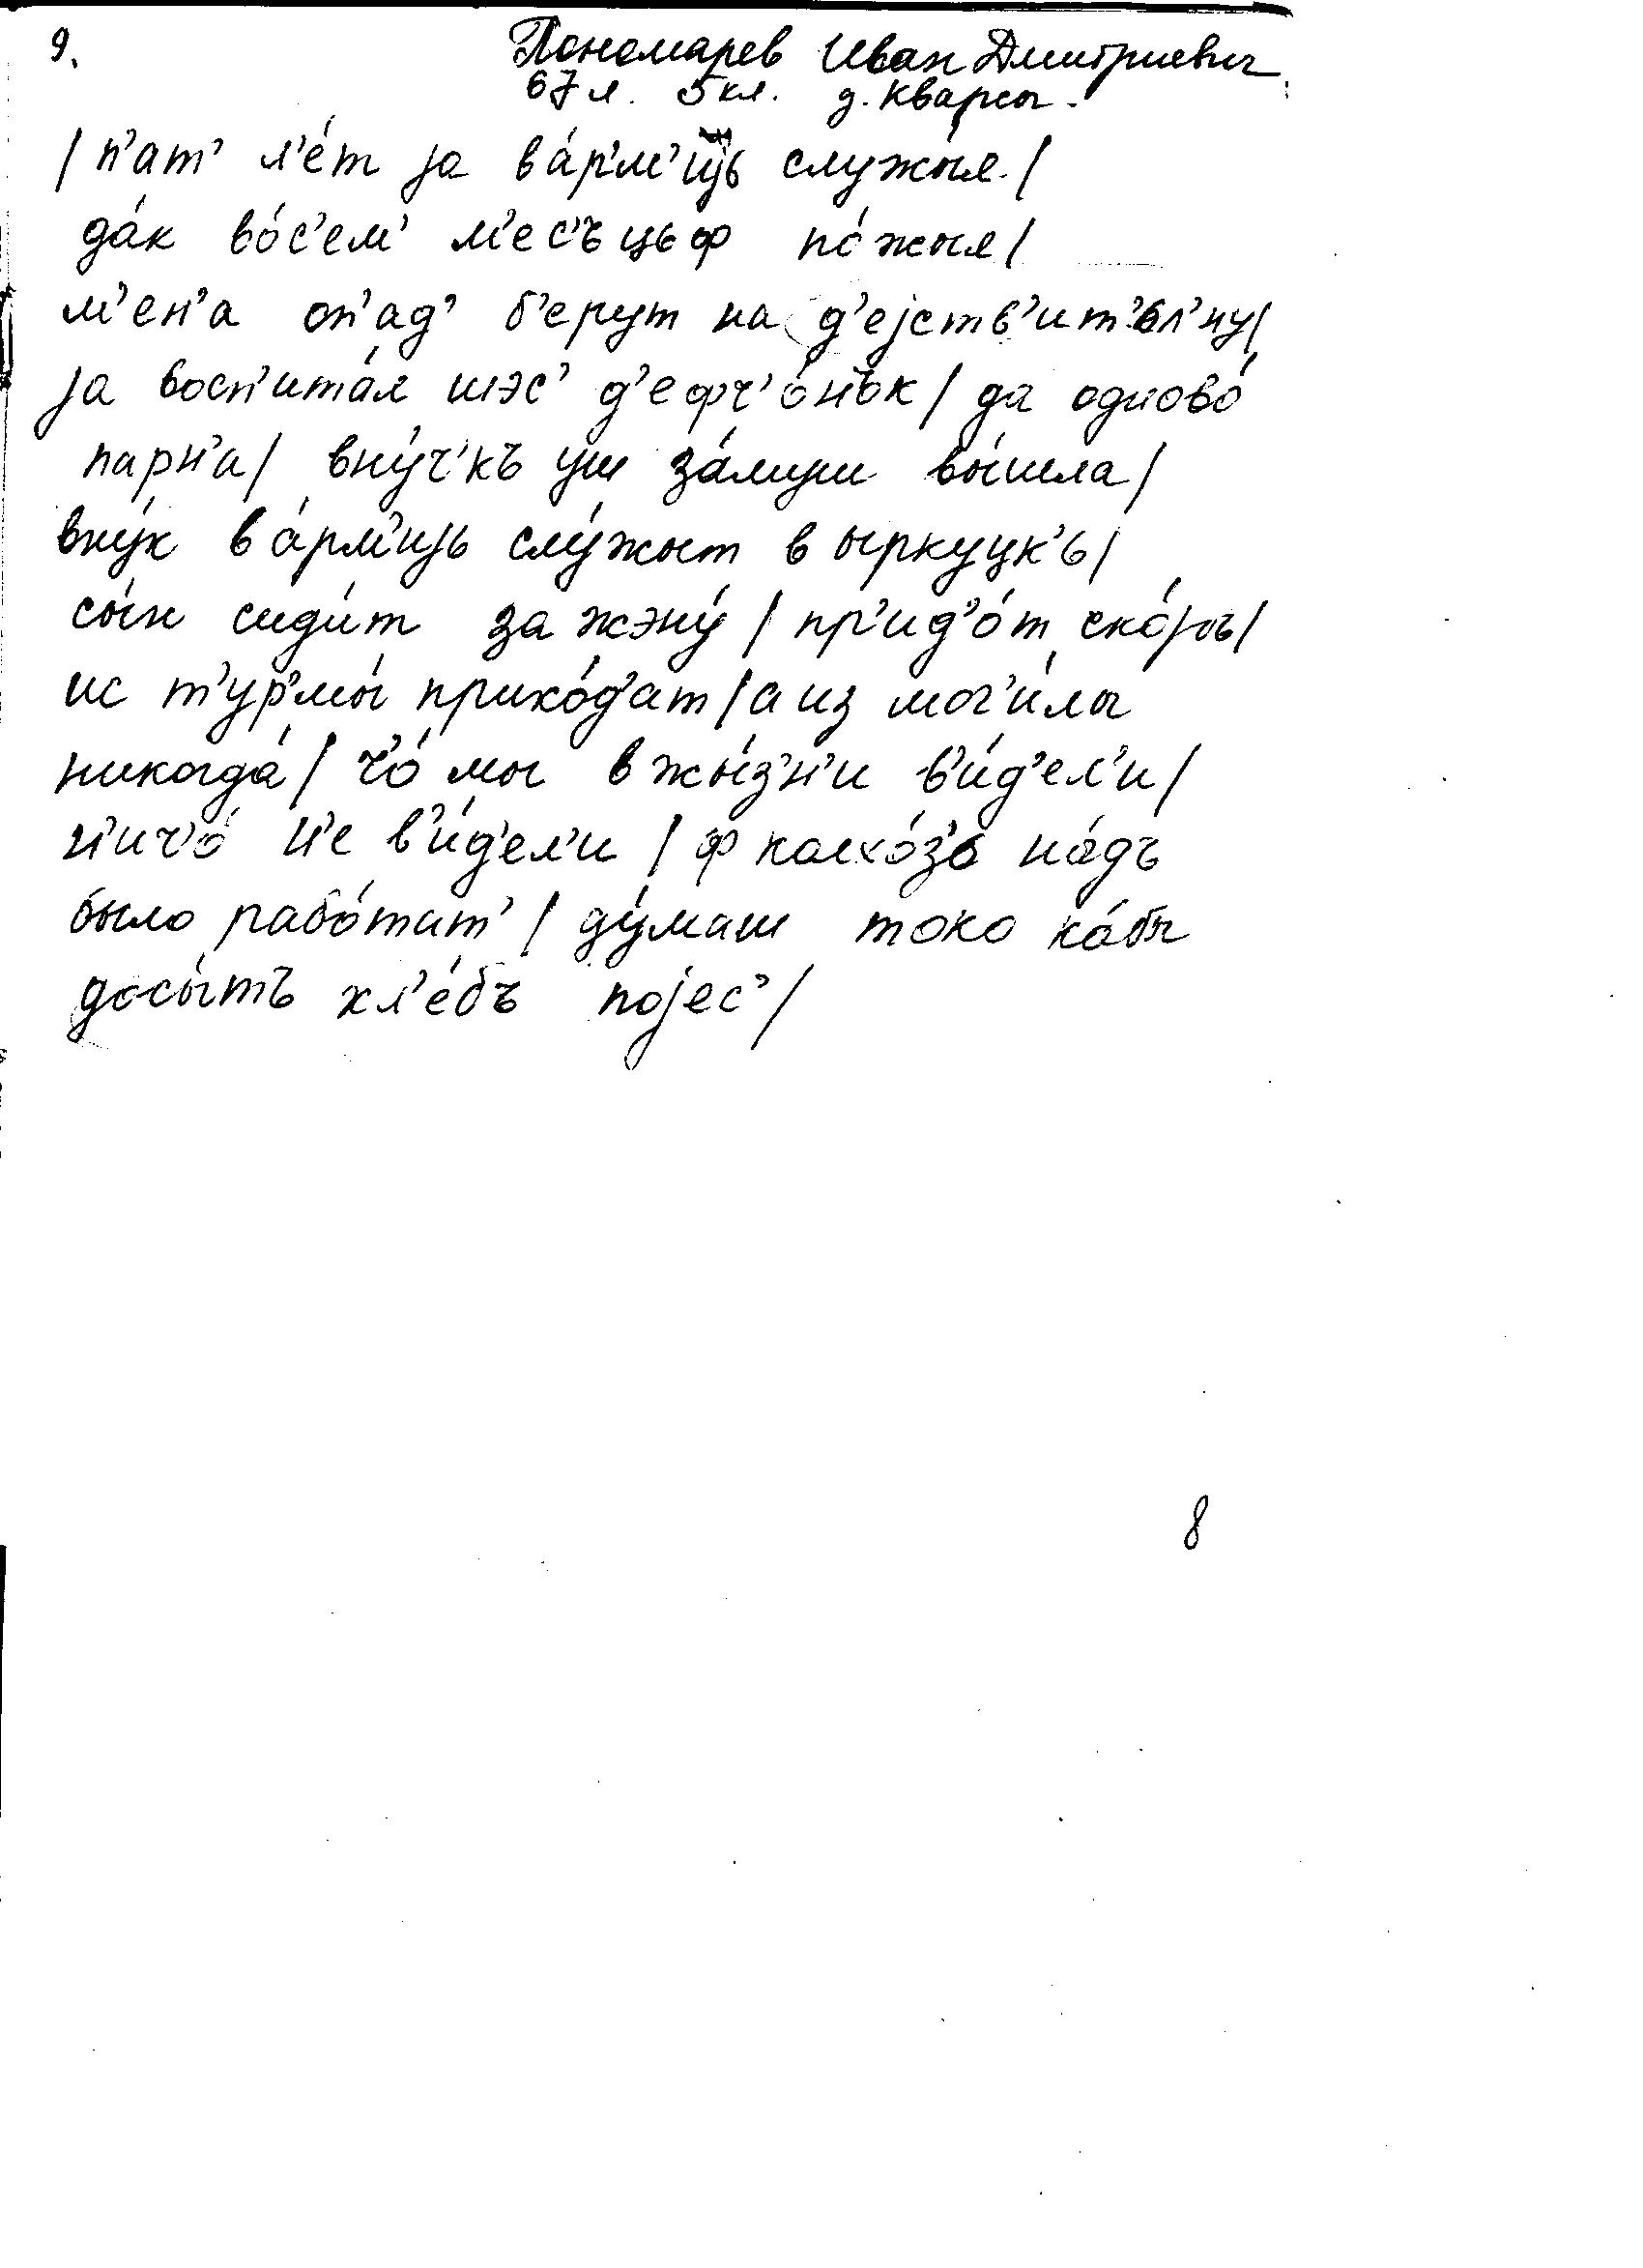 9.
Пономарев Иван Дмитриевич
67 л. 5 кл. д. Кварсы.
/ п'ат' л'е́т jа ва́рм'иjь служы́л /
да́к во́с'ем' м'ес'ъцьф по́жыл /
м'ен'а оп'ад' б'ерут на д'еjств'ит'ьл'ну /
jа восп'ита́л шэс' д'ефч'о́нък / да одново́
парн'а / вну́ч'къ уш за́муш вы́шла /
вну́к ва́рм'иjь слу́жыт в ыркуцк'ь /
сы́н сиди́т за жэну́ / пр'ид'о́т ско́ръ /
ис т'ур'мы́ прихо́д'ат / а из мог'и́лы
никогда́ / ч'о́ мы в жы́з'н'и в'и́д'ел'и /
н'ич'о́ н'е в'и́д'ел'и / ф колхо́з'ь на́дъ
было рабо́тат' / ду́маш токо ка́бы
досы́тъ хл'е́бъ поjес' /
8